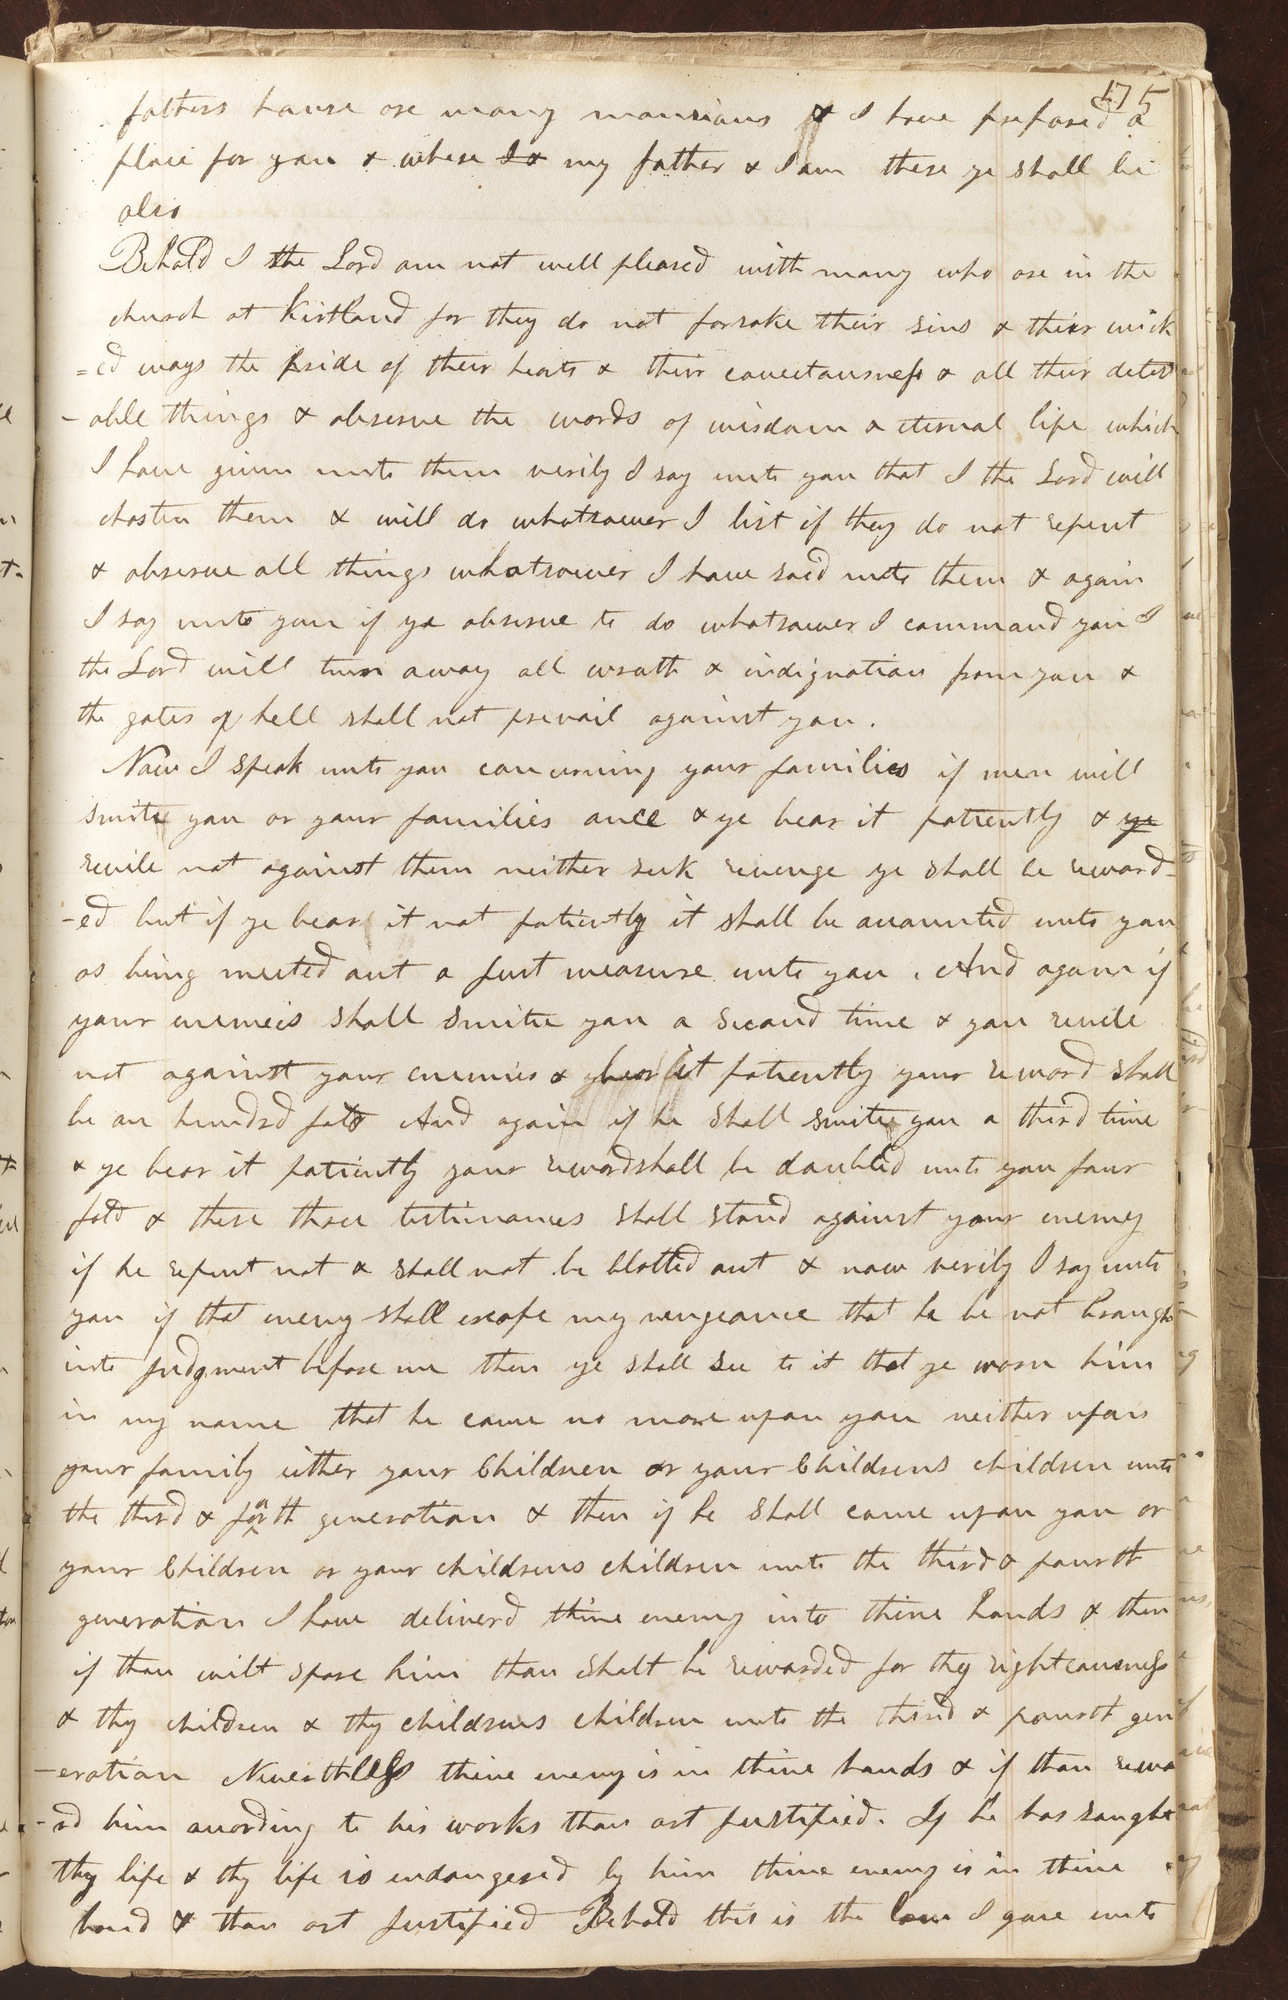 175
fathers house are many mansions & I have prepared a
place for you & where I & my father & I am there ye shall be
also
Behold I the Lord am not well pleased with many who are in the
church at Kirtland for they do not forsake their sins & their wick
=ed ways the pride of their hearts & their covetousness & all their detest
-able things & observe the words of wisdom & eternal life which
I have given unto them verily I say unto you that I the Lord will
chasten them & will do whatsoever I list if they do not repent
& observe all things whatsoever I have said unto them & again
I say unto you if ye observe to do whatsoever I command you I
the Lord will turn away all wrath & indignation from you &
the gates of hell shall not prevail against you.
Now I speak unto you concerning your families if men will
smite you or your families once & ye bear it patiently & ye
revile not against them neither seek revenge ye shall be reward-
-ed but if ye bear it not patiently it shall be accounted unto you
as being meeted out a just measure unto you. And again if
your enemies shall smite you a second time & you revile
not against your enemies & bear it patiently your reward shall
be an hundrd fold And again if he shall smite you a third time
& ye bear it patiently your reward shall be doubled unto you four
fold & these three testimonies shall stand against your enemy
if he repent not & shall not be blotted out & now verily I say unto
you if that enemy shall escape my vengeance that he be not brought
into judgment before me then ye shall see to it that ye warn him
in my name that he come no more upon you neither upon
your family either your Children or your Childrens children unto
the third & foath generation & then if he shall come upon you or
your Children or your childrens children unto the third & fourth
generation I have deliverd thine enemy into thine hands & then
if thou wilt spare him thou shalt be rewarded for thy righteousness
& thy children & thy childrens children unto the third & fourth gen
-eration Neverthless thine enemy is in thine hands & if thou rewa
-rd him according to his works thou art justified. If he has sought
thy life & thy life is endangered by him thine enemy is in thine
hand & thou art justified Behold this is the law I gave unto